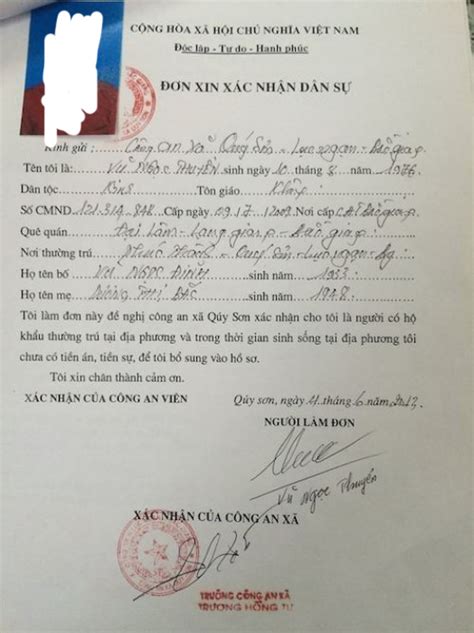 CỘNG HÒA XÃ HỘI CHỦ NGHĨA VIỆT NAM
Độc lập - Tự do - Hạnh phúc
ĐƠN XIN XÁC NHẬN DÂN SỰ
Kính gửi : Công an xã Quý Sơn - Lục ngạn - Bắc giang
Tên tôi là: Vũ Ngọc sinh ngày 10 tháng 8 năm 1976
Dân tộc Kinh Tôn giáo Không
Số CMND 121.314.848 Cấp ngày Nơi cấp CA Bắc giang
Quê quán Đại Lâm - Lạng giang - Bắc giang
Nơi thường trú - Quý Sơn - Lục ngạn - Bg
Họ tên bố Vũ Ngọc sinh năm 1953
Họ tên mẹ Thị Bắc sinh năm 1948
Tôi làm đơn này đề nghị công an xã Qúy Sơn xác nhận cho tôi là người có hộ
khẩu thường trú tại địa phương và trong thời gian sinh sống tại địa phương tôi
chưa có tiền án, tiền sự, để tôi bổ sung vào hồ sơ.
Tôi xin chân thành cảm ơn.
XÁC NHẬN CỦA CÔNG AN VIÊN
Qúy sơn, ngày 11 tháng 6 năm
NGƯỜI LÀM ĐƠN
Vũ Ngọc
XÁC NHẬN CỦA CÔNG AN XÃ
TRƯỞNG CÔNG AN XÃ
TRƯƠNG HỒNG TƯ